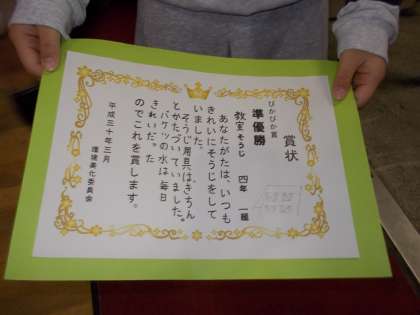 賞状
ぴかぴか賞
準優勝
教室そうじ 四年 一組
あなたがたは、いつも
きれいにそうじをして
いました。
そうじ用具はきちん
とかたづいていました。
バケツの水は毎日
きれいだった
のでこれを賞します。
平成三十年三月
環境美化委員会